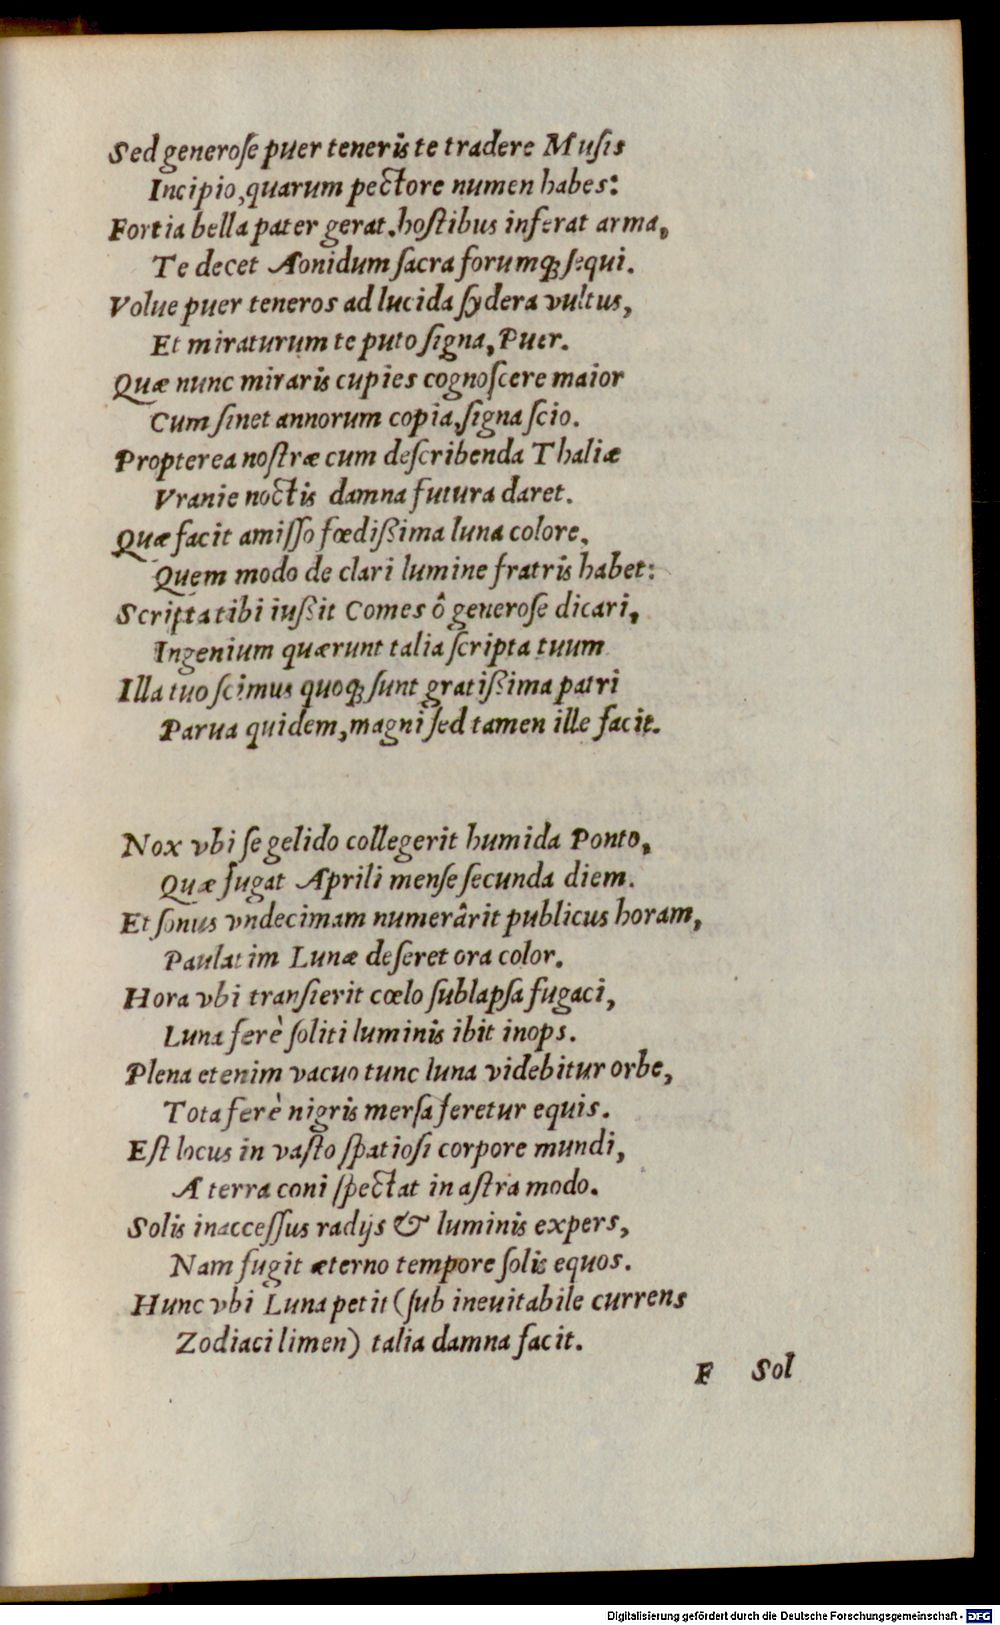 Sed generoſe puer teneris te tradere Muſis
Incipio, quarum pectore numen habes:
Fortia bella pater gerat, hoſtibus inferat arma,
Te decet Aonidum ſacra forumq; ſequi.
Volue puer teneros ad lucida ſydera vultus,
Et miraturum te puto ſigna, Puer.
Quæ nunc miraris cupies cognoſcere maior
Cum ſinet annorum copia, ſigna ſcio.
Propterea noſtræ cum deſcribenda Thaliæ
Vranie noctis damna futura daret.
Quæ facit amiſſo fœdißima luna colore,
Quem modo de clari lumine fratris habet:
Scripta tibi iußit Comes ô generoſe dicari,
Ingenium quærunt talia ſcripta tuum
Illa tuo ſcimus quoq; ſunt gratißima patri
Parua quidem, magni ſed tamen ille facit.
Nox vbi ſe gelido collegerit humida Ponto,
Quæ fugat Aprili menſe ſecunda diem.
Et ſonus vndecimam numerârit publicus horam,
Paulatim Lunæ deſeret ora color.
Hora vbi tranſierit cœlo ſublapſa fugaci,
Luna ferè ſoliti luminis ibit inops.
Plena etenim vacuo tunc luna videbitur orbe,
Tota ferè nigris merſa feretur equis.
Eſt locus in vaſto ſpatioſi corpore mundi,
A terra coni ſpectat in aſtra modo.
Solis inacceſſus radijs & luminis expers,
Nam fugit æterno tempore ſolis equos.
Hunc vbi Luna petit (ſub ineuitabile currens
Zodiaci limen) talia damna facit.
F Sol
Digitalisierung gefördert durch die Deutsche Forschungsgemeinschaft - DFG